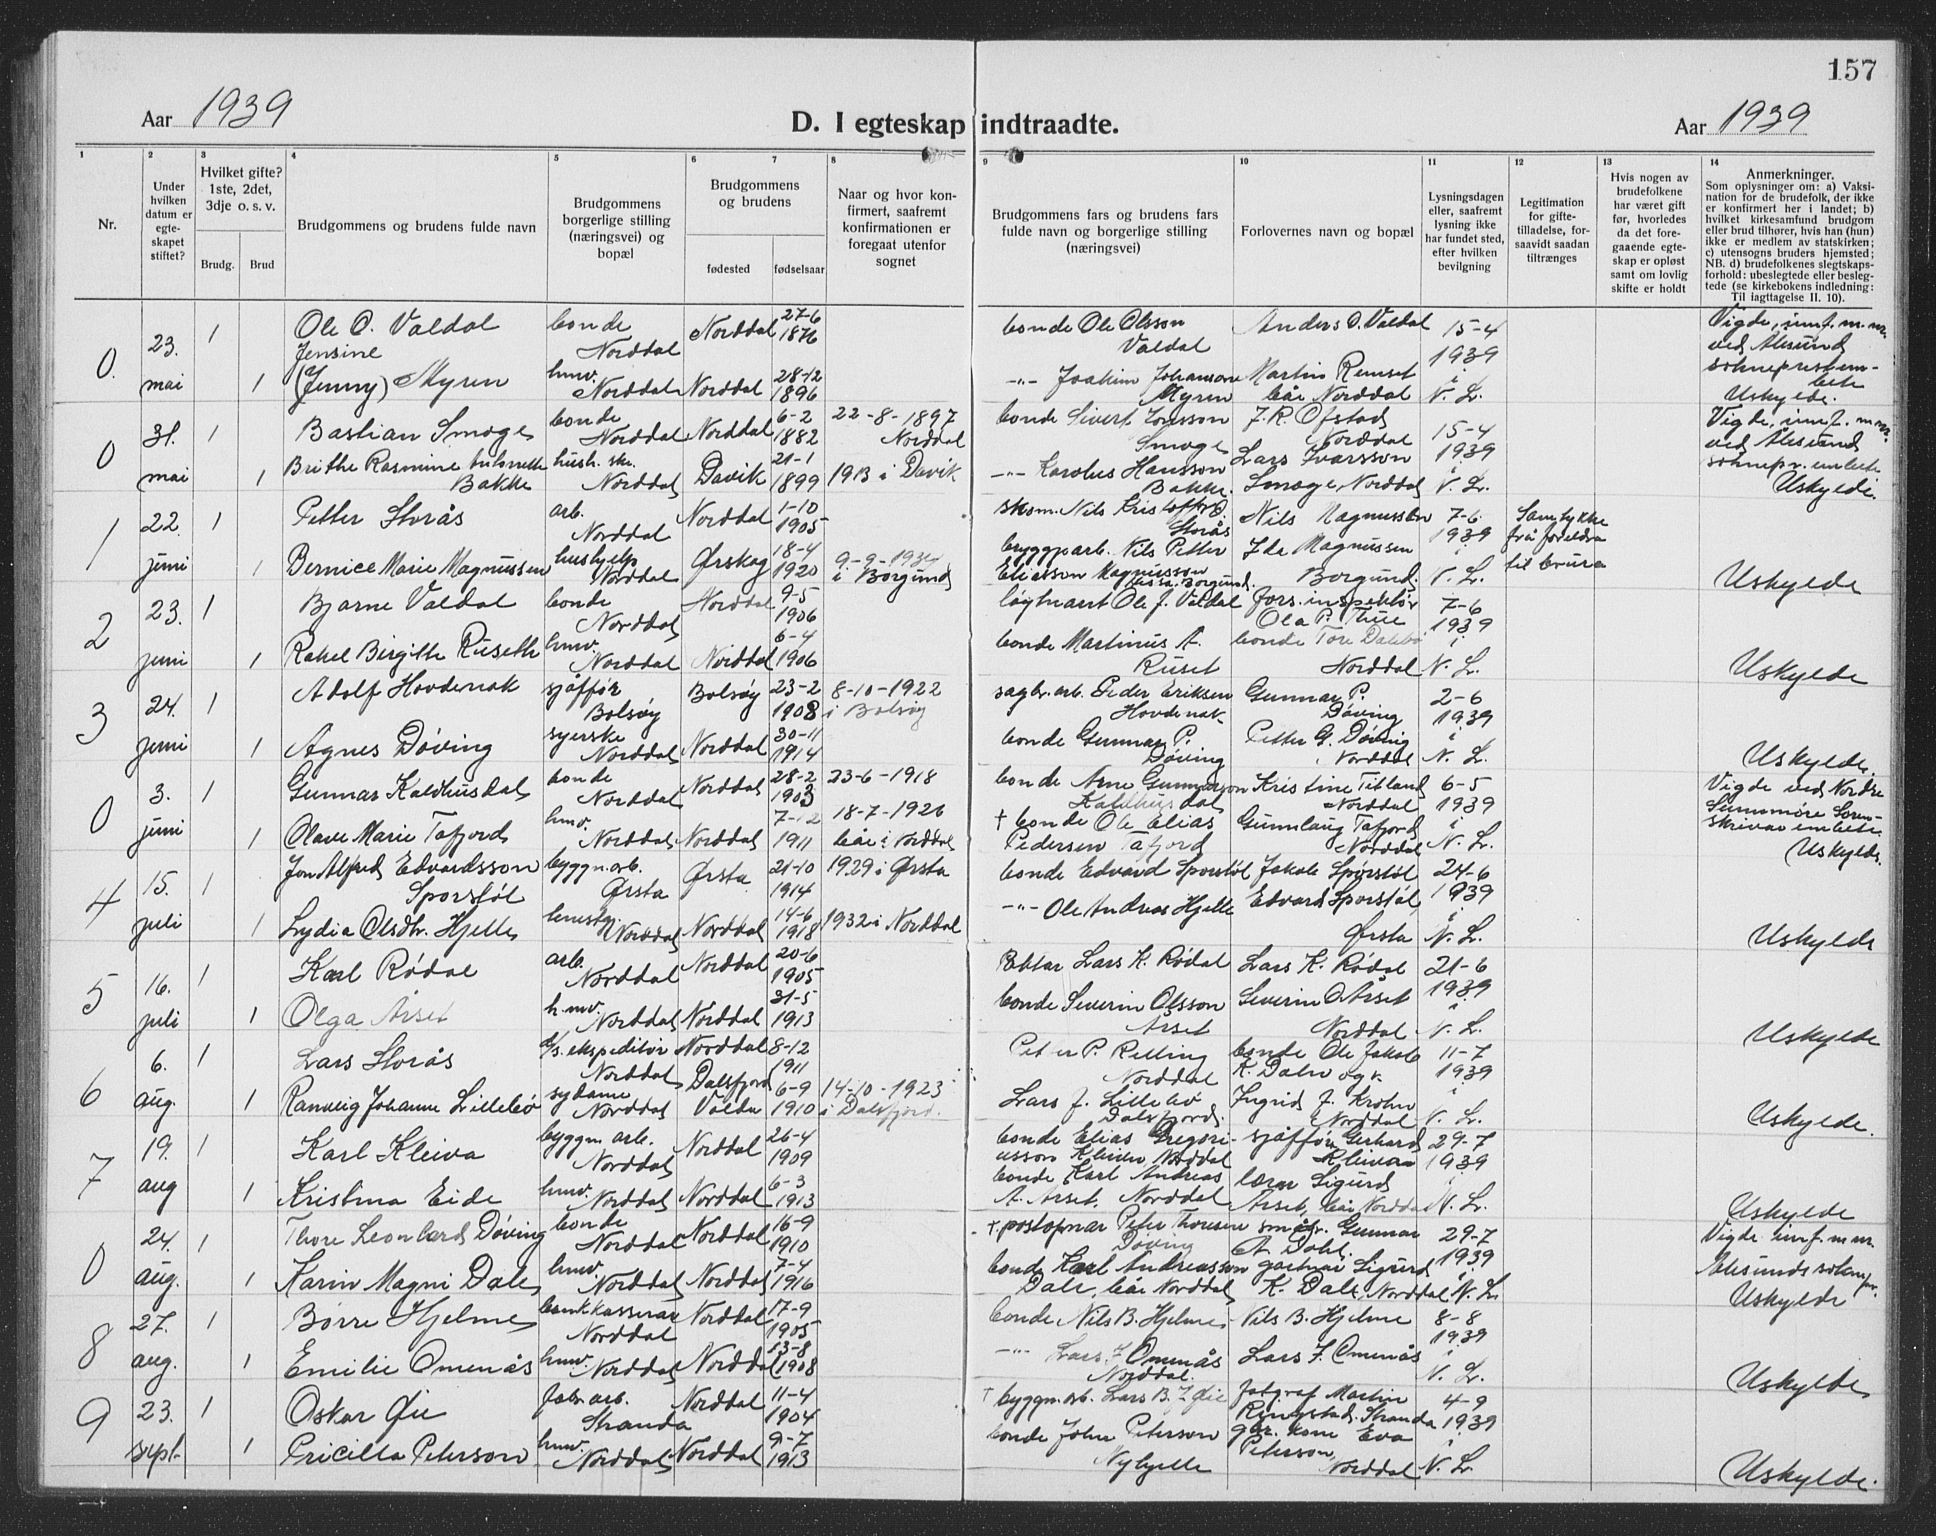 157
Aar 1939
D. I egteskap indtraadte.
Aar 1939
1 2 3 4 5 6 7 8 9 10 11 12 13 14
Nr.
Under hvilken datum er egte-skapet stiftet?
Hvilket gifte? 1ste, 2det, 3dje o. s. v.
Brudg. Brud
Brudgommens og brudens fulde navn
Brudgommens borgerlige stilling (næringsvei) og bopæl
Brudgommens og brudens
fødested fødselsaar
Naar og hvor kon-firmert, saafremt konfirmationen er foregaat utenfor sognet
Brudgommens fars og brudens fars fulde navn og borgerlige stilling (næringsvei)
Forlovernes navn og bopæl
Lysningsdagen eller, saafremt lysning ikke har fundet sted, efter hvilken bevilgning
Legitimation for gifte-tilladelse, for-saavidt saadan tiltrænges
Hvis nogen av brudefolkene har været gift før, hvorledes da det fore-gaaende egte-skap er opløst samt om lovlig skifte er holdt
Anmerkninger.
Som oplysninger om: a) Vaksi-nation for de brudefolk, der ikke er konfirmert her i landet; b) hvilket kirkesamfund brudgom eller brud tilhører, hvis han (hun) ikke er medlem av statskirken; c) utensogns bruders hjemsted; NB. d) brudefolkenes slegtskaps-forhold: ubeslegtede eller besleg-tede (se kirkebokens indledning: Til iagttagelse II. 10).
0. 23. mai 1 Ole O. Valdal bonde Norddal Norddal 27-6 1876 bonde Ole Olsson Valdal Anders O. Valdal 15-4 1939 i N. L. Vigde, ved Ålesund
1 Jensine (Jenny) Myren hmv. Norddal Norddal 28-12 1896 -"- Joakim Johansson Myren Martin Remset båe Norddal Uskylde.
0 31. mai 1 Bastian Smoge bonde Norddal Norddal 6-2 1882 22-8-1897 Norddal bonde Sivert Jonsson Smoge J. R. Ofstad Norddal 15-4 1939 i N. L. Vigde, ved Ålesund
1 Brithe Rasmine Bakke hush. Norddal Davik 21-1 1899 1913 i Davik -"- Karolus Hansson Bakke. Lars Ivarsson Smoge, Norddal Uskylde.
1 22. juni 1 Petter Storås arb. Norddal Norddal 1-10 1905 Nils Storås Nils Magnussen 7-6 1939 i N. L. Samtykke frå foreldra til brura
1 Bernice Marie Magnussen hushjelp Norddal Ørskog 18-4 1920 9-9-1934 i Borgund byggn.arb. Nils Petter Eliasson Magnusson Borgund. Ida Magnussen Borgund. Uskylde
2 23. juni 1 Bjarne Valdal bonde Norddal Norddal 9-5 1906 løytnant Ole J. Valdal fors.inspektør Ola P. Thue 7-6 1939 i N. L.
1 Rakel Birgitte Ruseth hmv. Norddal Norddal 6-4 1906 bonde Martinus A. Ruset bonde Tore Norddal Uskylde
3 24. juni 1 Adolf Hovdenak sjåffør Bolsøy Bolsøy 23-2 1908 8-10-1922 i Bolsøy sagbr.arb. Peder Eriksen Hovdenak Gunnar P. Døving 2-6 1939 i N. L.
1 Agnes Døving syerske Norddal Norddal 30-11 1914 bonde Gunnar P. Døving Petter G. Døving Norddal Uskylde.
0 3. juni 1 Gunnar Kaldhusdal bonde Norddal Norddal 28-2 1903 23-6-1918 bonde Arne Gunnarson Kaldhusdal Kristine Tilland Norddal 6-5 1939 i N. L. Vigde ved Nordre Sunnmøre Soren-skrivar embete.
1 Olave Marie Tafjord hmv. Norddal Norddal 7-12 1911 18-7-1926 båe i Norddal † bonde Ole Elias Pedersen Tafjord Gunnlaug Tafjord Norddal Uskylde.
4 15. juli 1 Jon Alfred Edvardsson Sporstøl byggn.arb. Ørsta Ørsta 21-10 1914 1929 i Ørsta bonde Edvard Sporstøl Jakob Sporstøl 24-6 1939 i N. L.
1 Lydia Olsdtr. Hjelle Norddal Norddal 14-6 1918 1932 i Norddal -"- Ole Andreas Hjelle Edvard Sporstøl, Ørsta Uskylde
5 16. juli 1 Karl Rødal arb. Norddal Norddal 20-6 1905 Lars K. Rødal Lars K. Rødal 21-6 1939 i N. L.
1 Olga Årset h.mv. Norddal Norddal 31-5 1913 bonde Severin Olsson Årset Severin O Årset Norddal Uskylde
6 6. aug. 1 Lars Storås ekspeditør Norddal Norddal 8-12 1911 Peter P. Relling Norddal bonde Ole Jakob K. Dahn og k. 11-7 1939 i N. L.
1 Ranveig Johanne Lillebø sydame Norddal Dalsfjord Volda 6-9 1910 14-10-1923 i Dalsfjord. Lars J. Lillebø Dalsfjord. Ingrid J. Krohn Norddal Uskylde.
7 19. aug 1 Karl Kleiva byggn. arb. Norddal Norddal 26-4 1909 bonde Elias Gregori-usson Kleiva Norddal sjåffør Gerhard Kleiva 29-7 1939 i N. L.
1 Kristina Eide hmv. Norddal Norddal 6-3 1913 bonde Karl Andreas A. Årset, Norddal lærar Sigurd Årset, båe Norddal Uskylde
0 24. aug. 1 Thore Leonhard Døving bonde Norddal Norddal 16-9 1910 † postopnar Peter Thoresen Døving Gunnar A. Dahl. 29-7 1939 i N. L. Vigde Ålesunds
1 Karin Magni Dale hmv. Norddal Norddal 7-4 1916 bonde Karl Andreasson Dale, båe Norddal gartnar Sigurd K. Dale, Norddal Uskylde
8 27. aug. 1 Børre Hjelme bankkasserar Norddal Norddal 17-9 1905 bonde Nils B. Hjelme Nils B. Hjelme 8-8 1939 i N. L.
1 Emilie Omenås hmv. Norddal Norddal 13-8 1908 -"- Lars J. Omenås Norddal. Lars J. Omenås Uskylde
9 23. sept. 1 Oskar Øie fabr.arb. Stranda Norddal 11-4 1904 † byggn.arb. Lars B. Øie fotograf Martin Ringstad, Stranda 4-9 1939 i N. L.
1 Pricilla Peterson hmv. Norddal Norddal 9-7 1913 bonde John Peterson Nyhjelle kone Eva Peterson, Norddal Uskylde.